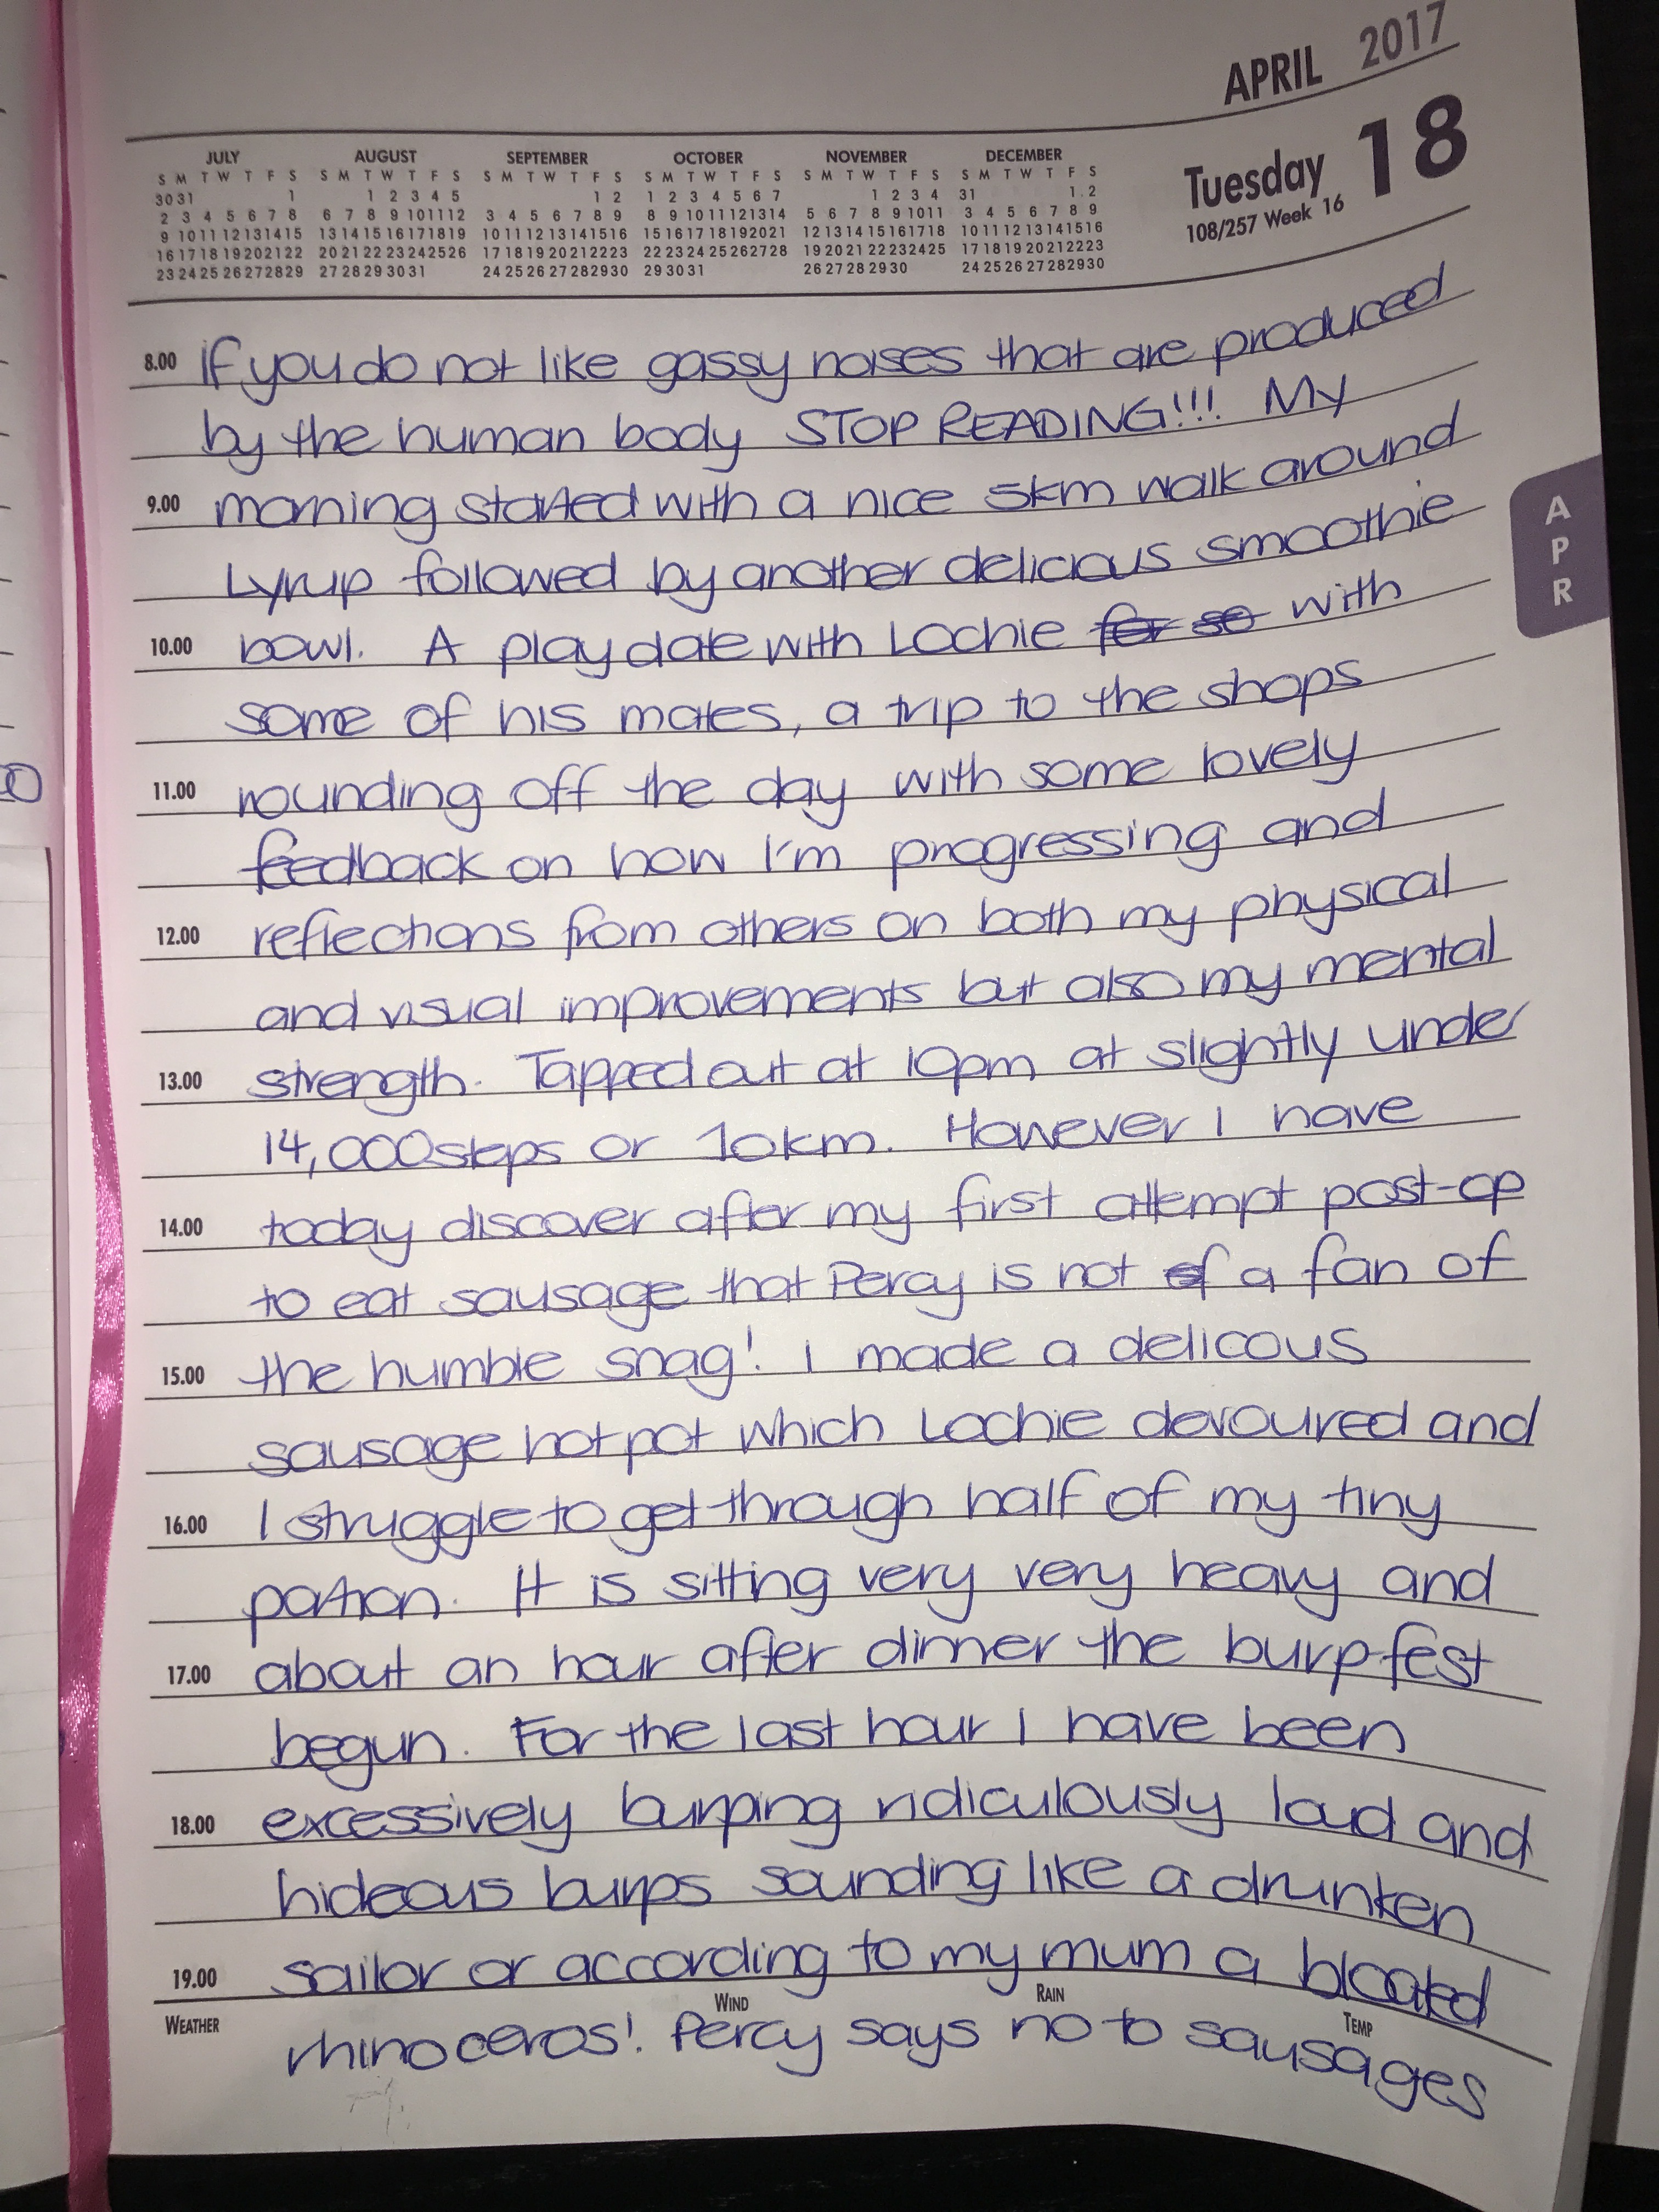 APRIL 2017
Tuesday 18
108/257 Week 16
JULY AUGUST SEPTEMBER OCTOBER NOVEMBER DECEMBER
S M T W T F S S M T W T F S S M T W T F S S M T W T F S S M T W T F S S M T W T F S
30 31 1 1 2 3 4 5 1 2 1 2 3 4 5 6 7 1 2 3 4 31 1 2
2 3 4 5 6 7 8 6 7 8 9 10 11 12 3 4 5 6 7 8 9 8 9 10 11 12 13 14 5 6 7 8 9 10 11 3 4 5 6 7 8 9
9 10 11 12 13 14 15 13 14 15 16 17 18 19 10 11 12 13 14 15 16 15 16 17 18 19 20 21 12 13 14 15 16 17 18 10 11 12 13 14 15 16
16 17 18 19 20 21 22 20 21 22 23 24 25 26 17 18 19 20 21 22 23 22 23 24 25 26 27 28 19 20 21 22 23 24 25 17 18 19 20 21 22 23
23 24 25 26 27 28 29 27 28 29 30 31 24 25 26 27 28 29 30 29 30 31 26 27 28 29 30 24 25 26 27 28 29 30
8.00 If you do not like gassy noises that are produced
by the human body STOP READING!!! My
9.00 morning started with a nice 5km walk around
Lyrup followed by another delicious smoothie
10.00 bowl. A play date with Lochie for so with
some of his mates, a trip to the shops
11.00 rounding off the day with some lovely
feedback on how I'm progressing and
12.00 reflections from others on both my physical
and visual improvements but also my mental
13.00 strength. Tapped out at 10pm at slightly under
14,000 steps or 10km. However I have
14.00 today discover after my first attempt post-op
to eat sausage that Percy is not of a fan of
15.00 the humble snag! I made a delicous
sausage hot pot which Lochie devoured and
16.00 I struggle to get through half of my tiny
portion. It is sitting very very heavy and
17.00 about an hour after dinner the burp fest
begun. For the last hour I have been
18.00 excessively burping ridiculously loud and
hideous burps sounding like a drunken
19.00 sailor or according to my mum a bloated
WEATHER WIND RAIN TEMP
rhinoceros! Percy says no to sausages
A
P
R